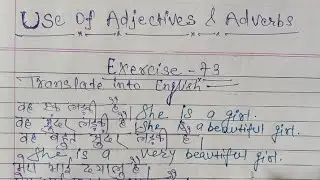 Use Of Adjectives & Adverbs
Exercise - 73
Translate into English -
वह एक लड़की है। She is a girl.
वह सुंदर लड़की है। She is a beautiful girl.
वह बहुत सुंदर लड़की है।
She is a very beautiful girl.
भाई दयालु है।